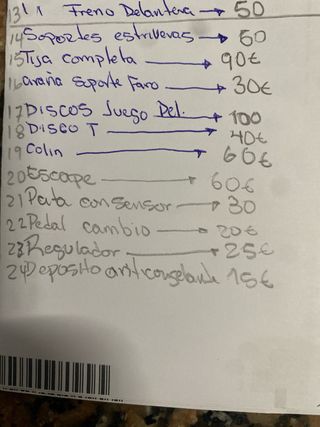 13 Freno Delantera → 50
14 Soportes estriveras → 50
15 Tija completa → 90€
16 araña soporte Faro → 30€
17 DISCOS Juego Del. → 100
18 DISCO T → 40€
19 Colin → 60€
20 Escape → 60€
21 Pata con sensor → 30
22 Pedal cambio → 20€
23 Regulador → 25€
24 Deposito anticongelante 15€